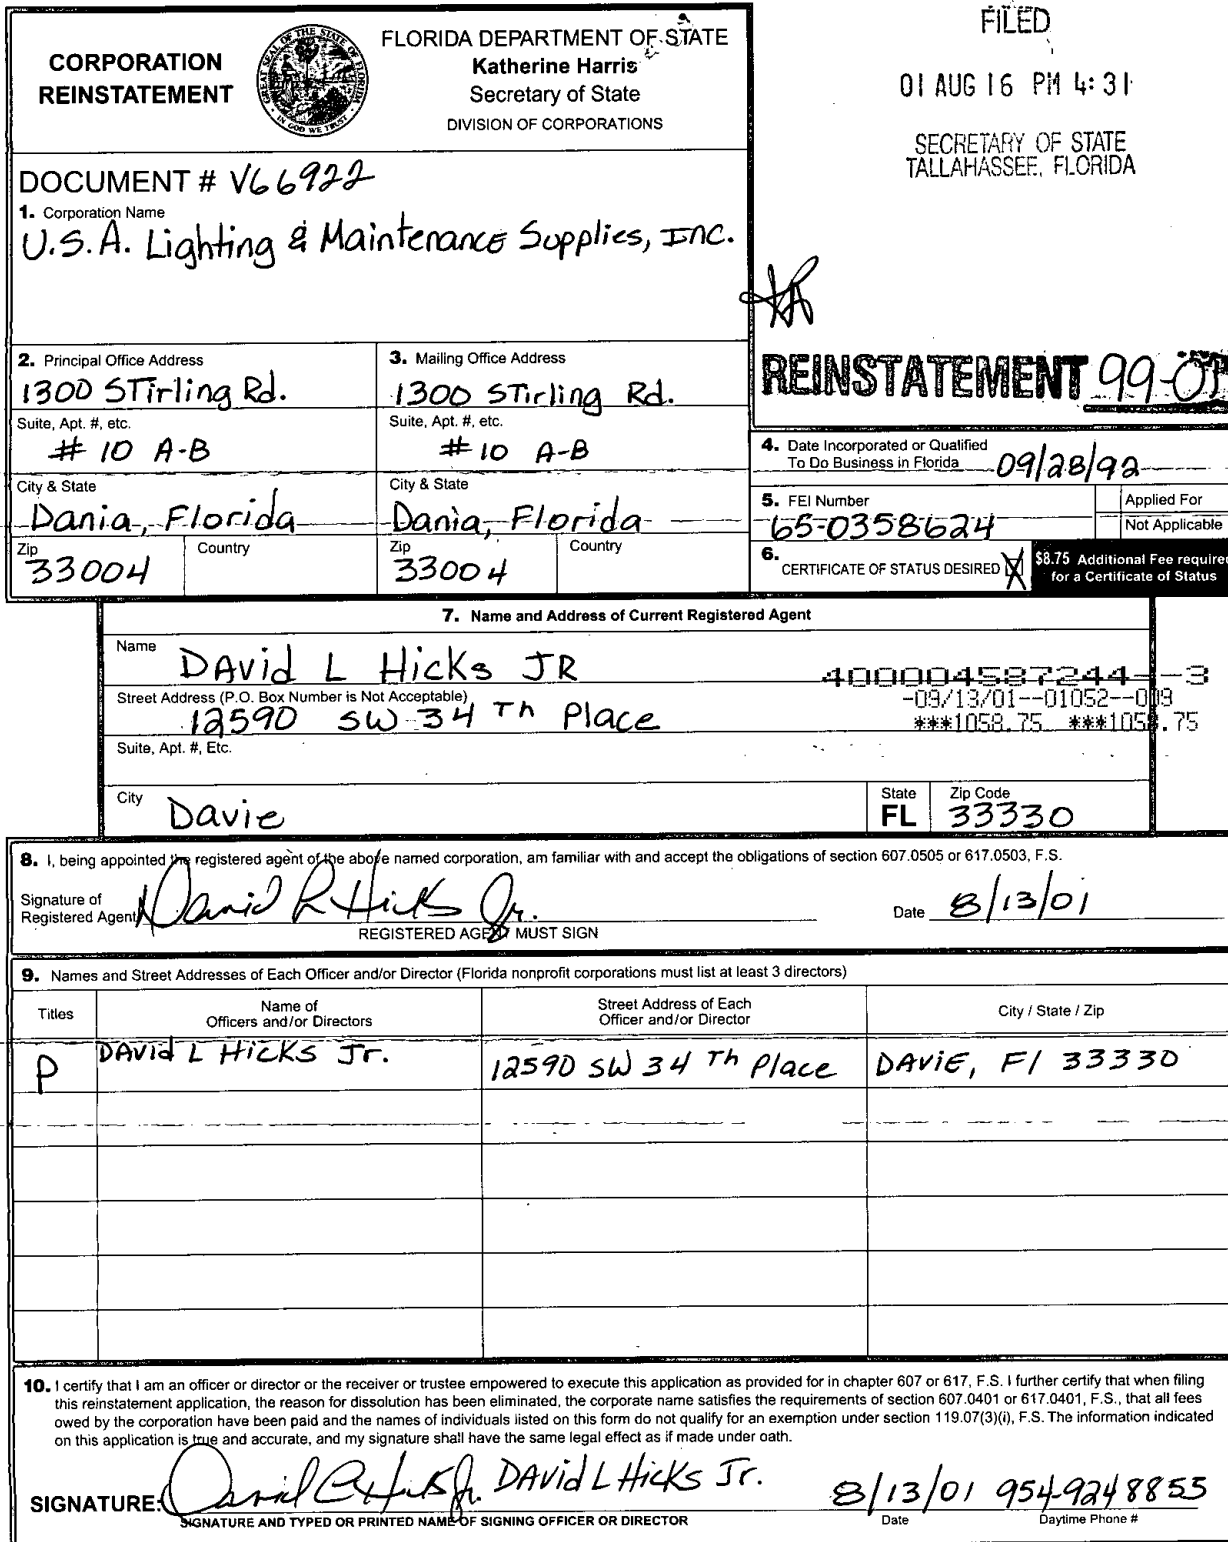 CORPORATION REINSTATEMENT
GREAT SEAL OF THE STATE OF FLORIDA
IN GOD WE TRUST
FLORIDA DEPARTMENT OF STATE
Katherine Harris
Secretary of State
DIVISION OF CORPORATIONS
FILED
01 AUG 16 PM 4:31
SECRETARY OF STATE
TALLAHASSEE, FLORIDA
DOCUMENT # V66922
1. Corporation Name
U.S.A. Lighting & Maintenance Supplies, Inc.
REINSTATEMENT 99-01
2. Principal Office Address
1300 STirling Rd.
Suite, Apt. #, etc.
# 10 A-B
City & State
Dania, Florida
Zip
33004
Country
3. Mailing Office Address
1300 STirling Rd.
Suite, Apt. #, etc.
# 10 A-B
City & State
Dania, Florida
Zip
33004
Country
4. Date Incorporated or Qualified
To Do Business in Florida 09/28/92
5. FEI Number
65-0358624
Applied For
Not Applicable
6. CERTIFICATE OF STATUS DESIRED X
$8.75 Additional Fee require
for a Certificate of Status
7. Name and Address of Current Registered Agent
Name
DAvid L Hicks JR
400004587244--3
-09/13/01--01052--009
***1058.75 ***1058.75
Street Address (P.O. Box Number is Not Acceptable)
12590 SW 34 Th Place
Suite, Apt. #, Etc.
City
Davie
State
FL
Zip Code
33330
8. I, being appointed the registered agent of the above named corporation, am familiar with and accept the obligations of section 607.0505 or 617.0503, F.S.
Signature of
Registered Agent David L Hicks Jr.
Date 8/13/01
REGISTERED AGENT MUST SIGN
9. Names and Street Addresses of Each Officer and/or Director (Florida nonprofit corporations must list at least 3 directors)
Titles
Name of
Officers and/or Directors
Street Address of Each
Officer and/or Director
City / State / Zip
P DAvid L HicKs Jr. 12590 SW 34 Th Place DAViE, Fl 33330
10. I certify that I am an officer or director or the receiver or trustee empowered to execute this application as provided for in chapter 607 or 617, F.S. I further certify that when filing
this reinstatement application, the reason for dissolution has been eliminated, the corporate name satisfies the requirements of section 607.0401 or 617.0401, F.S., that all fees
owed by the corporation have been paid and the names of individuals listed on this form do not qualify for an exemption under section 119.07(3)(i), F.S. The information indicated
on this application is true and accurate, and my signature shall have the same legal effect as if made under oath.
SIGNATURE: David L Hicks Jr. DAvid L HicKs Jr. 8/13/01 954-924 8855
SIGNATURE AND TYPED OR PRINTED NAME OF SIGNING OFFICER OR DIRECTOR
Date
Daytime Phone #